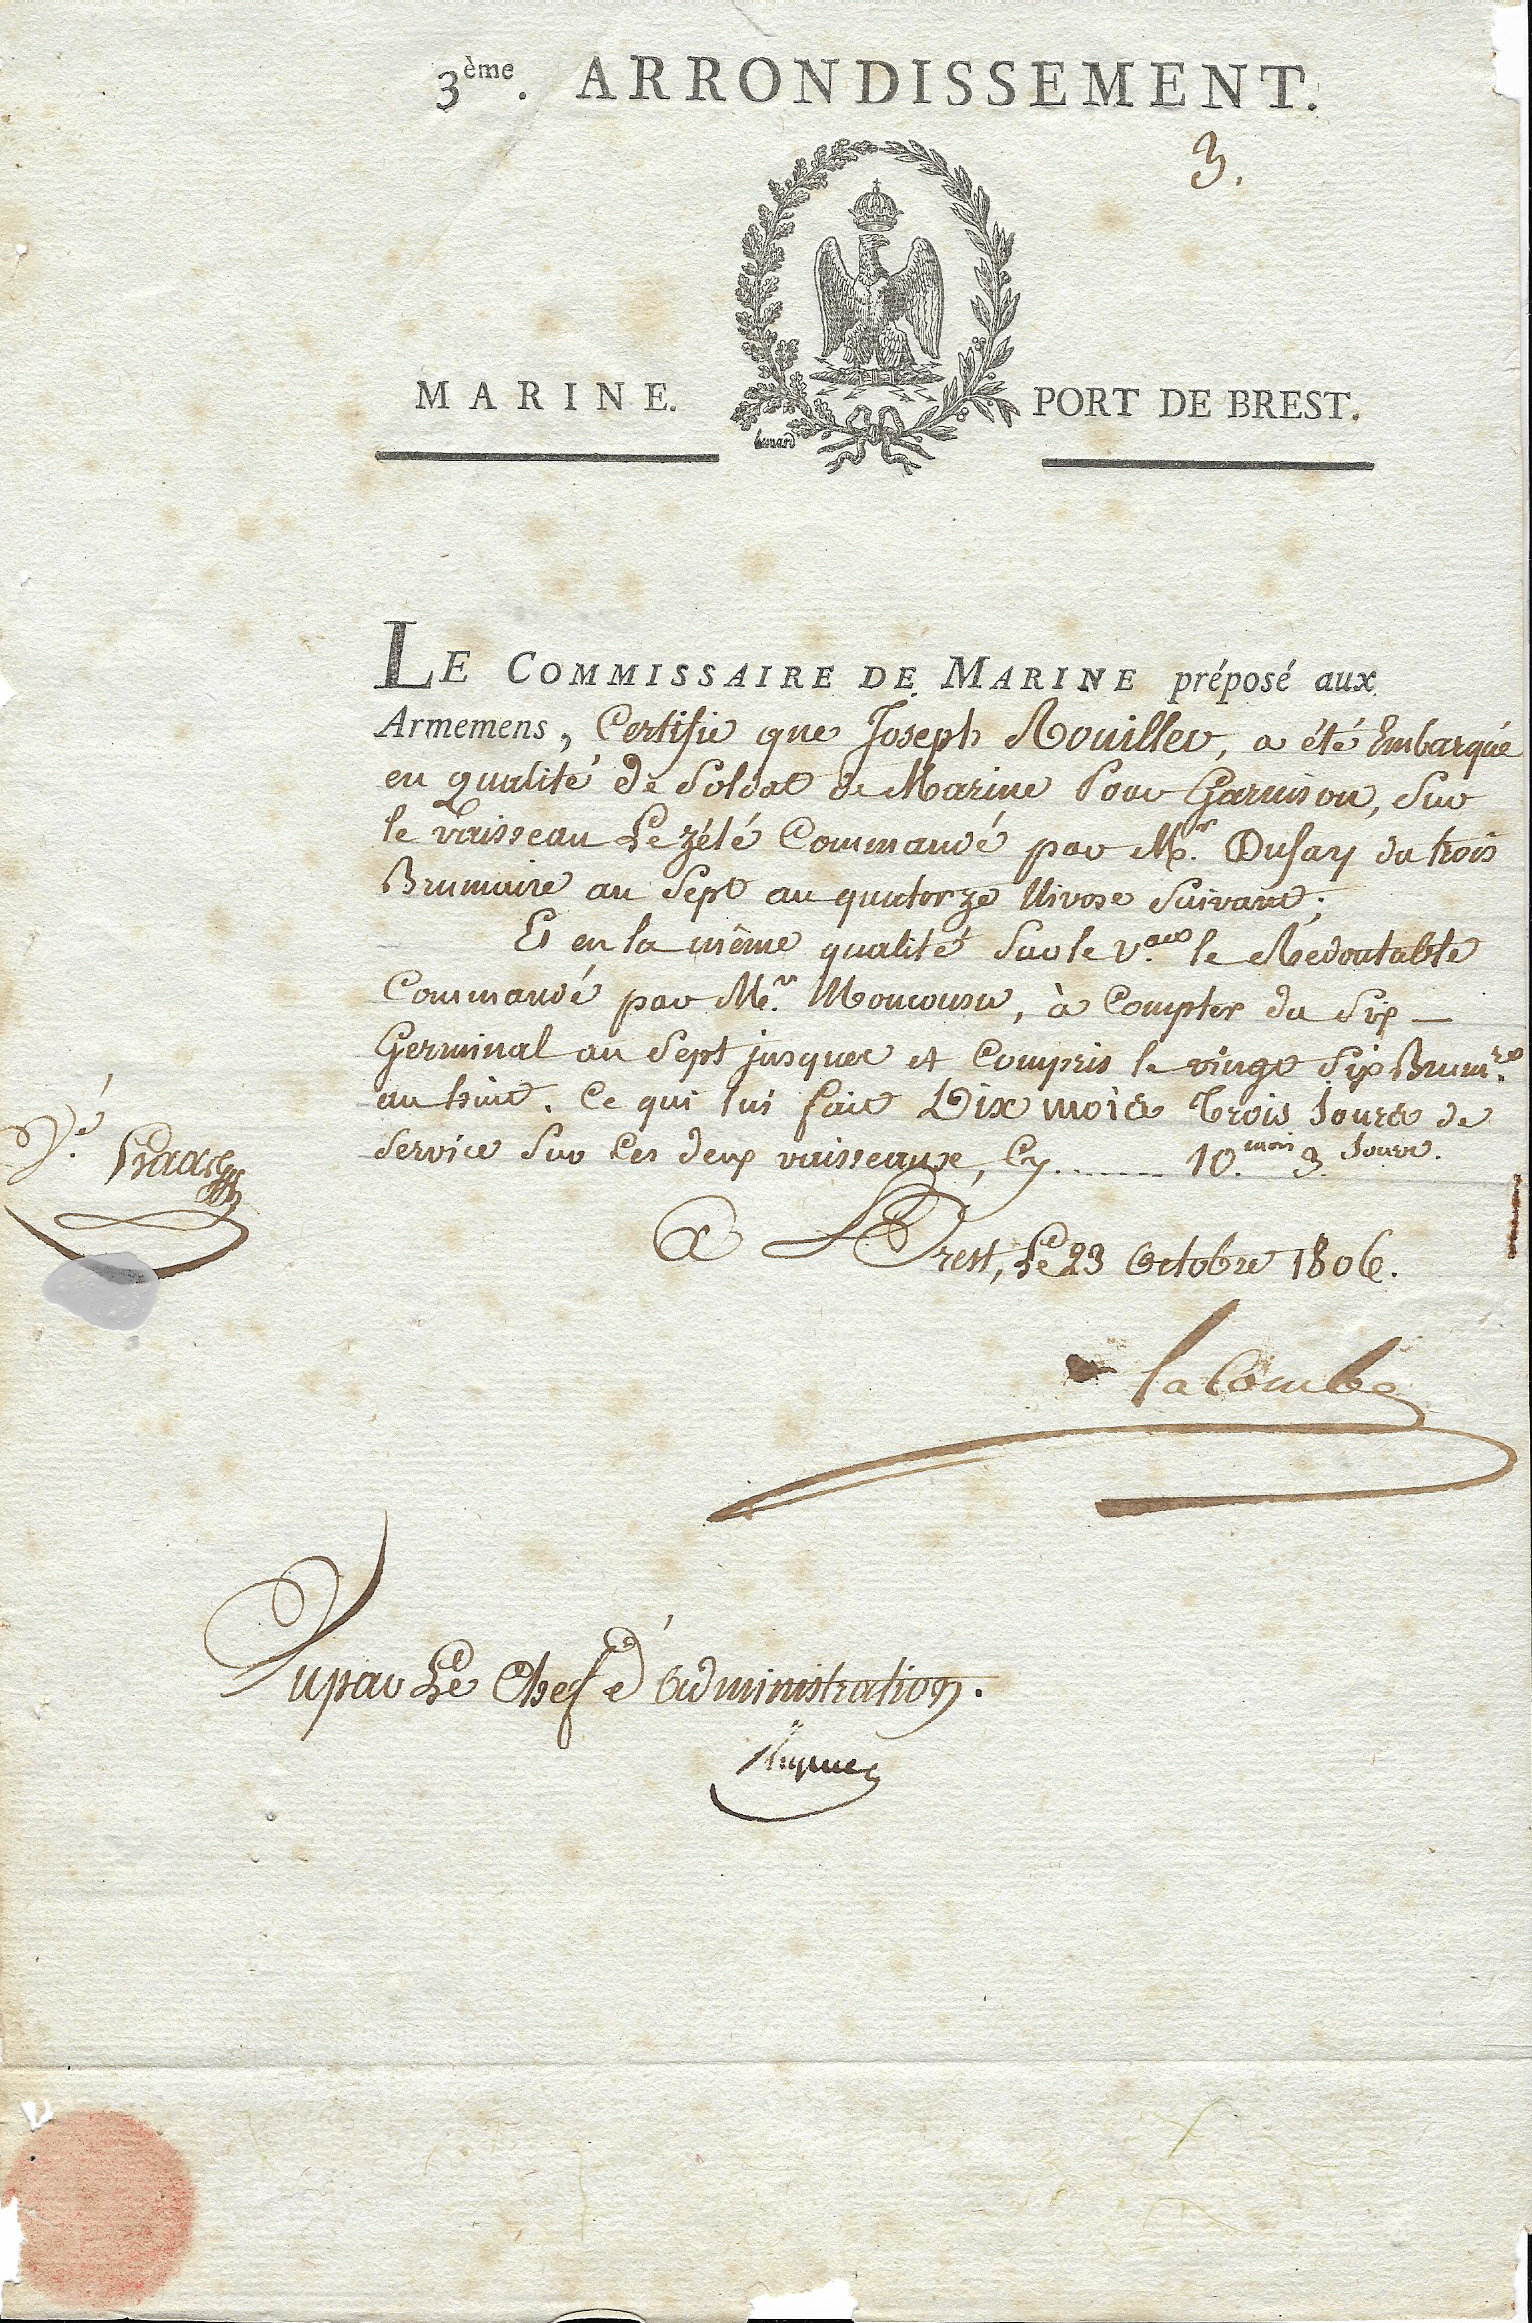 3ème. ARRONDISSEMENT.
3.
MARINE. PORT DE BREST.
LE COMMISSAIRE DE MARINE préposé aux
Armemens, Certifie que Joseph Rouiller, a été Embarqué
en qualité de Soldat de Marine Pour Garnison, Sur
le Vaisseau Le Zélé Commandé par Mr. Dufay du trois
Brumaire an Sept au quatorze Nivose Suivant;
Et en la même qualité Sur le Veau le Redoutable
Commandé par Mr. Moncousu, à Compter du Six
Germinal an Sept jusques et Compris le vingt Six Brumre.
an huit. Ce qui lui fait Dix mois Trois Jours de
Service Sur Les deux vaisseaux, Cy....... 10 mois 3 Jours.
A Brest, Le 23 Octobre 1806.
La Combe
Vu par Le Chef d'Administration.